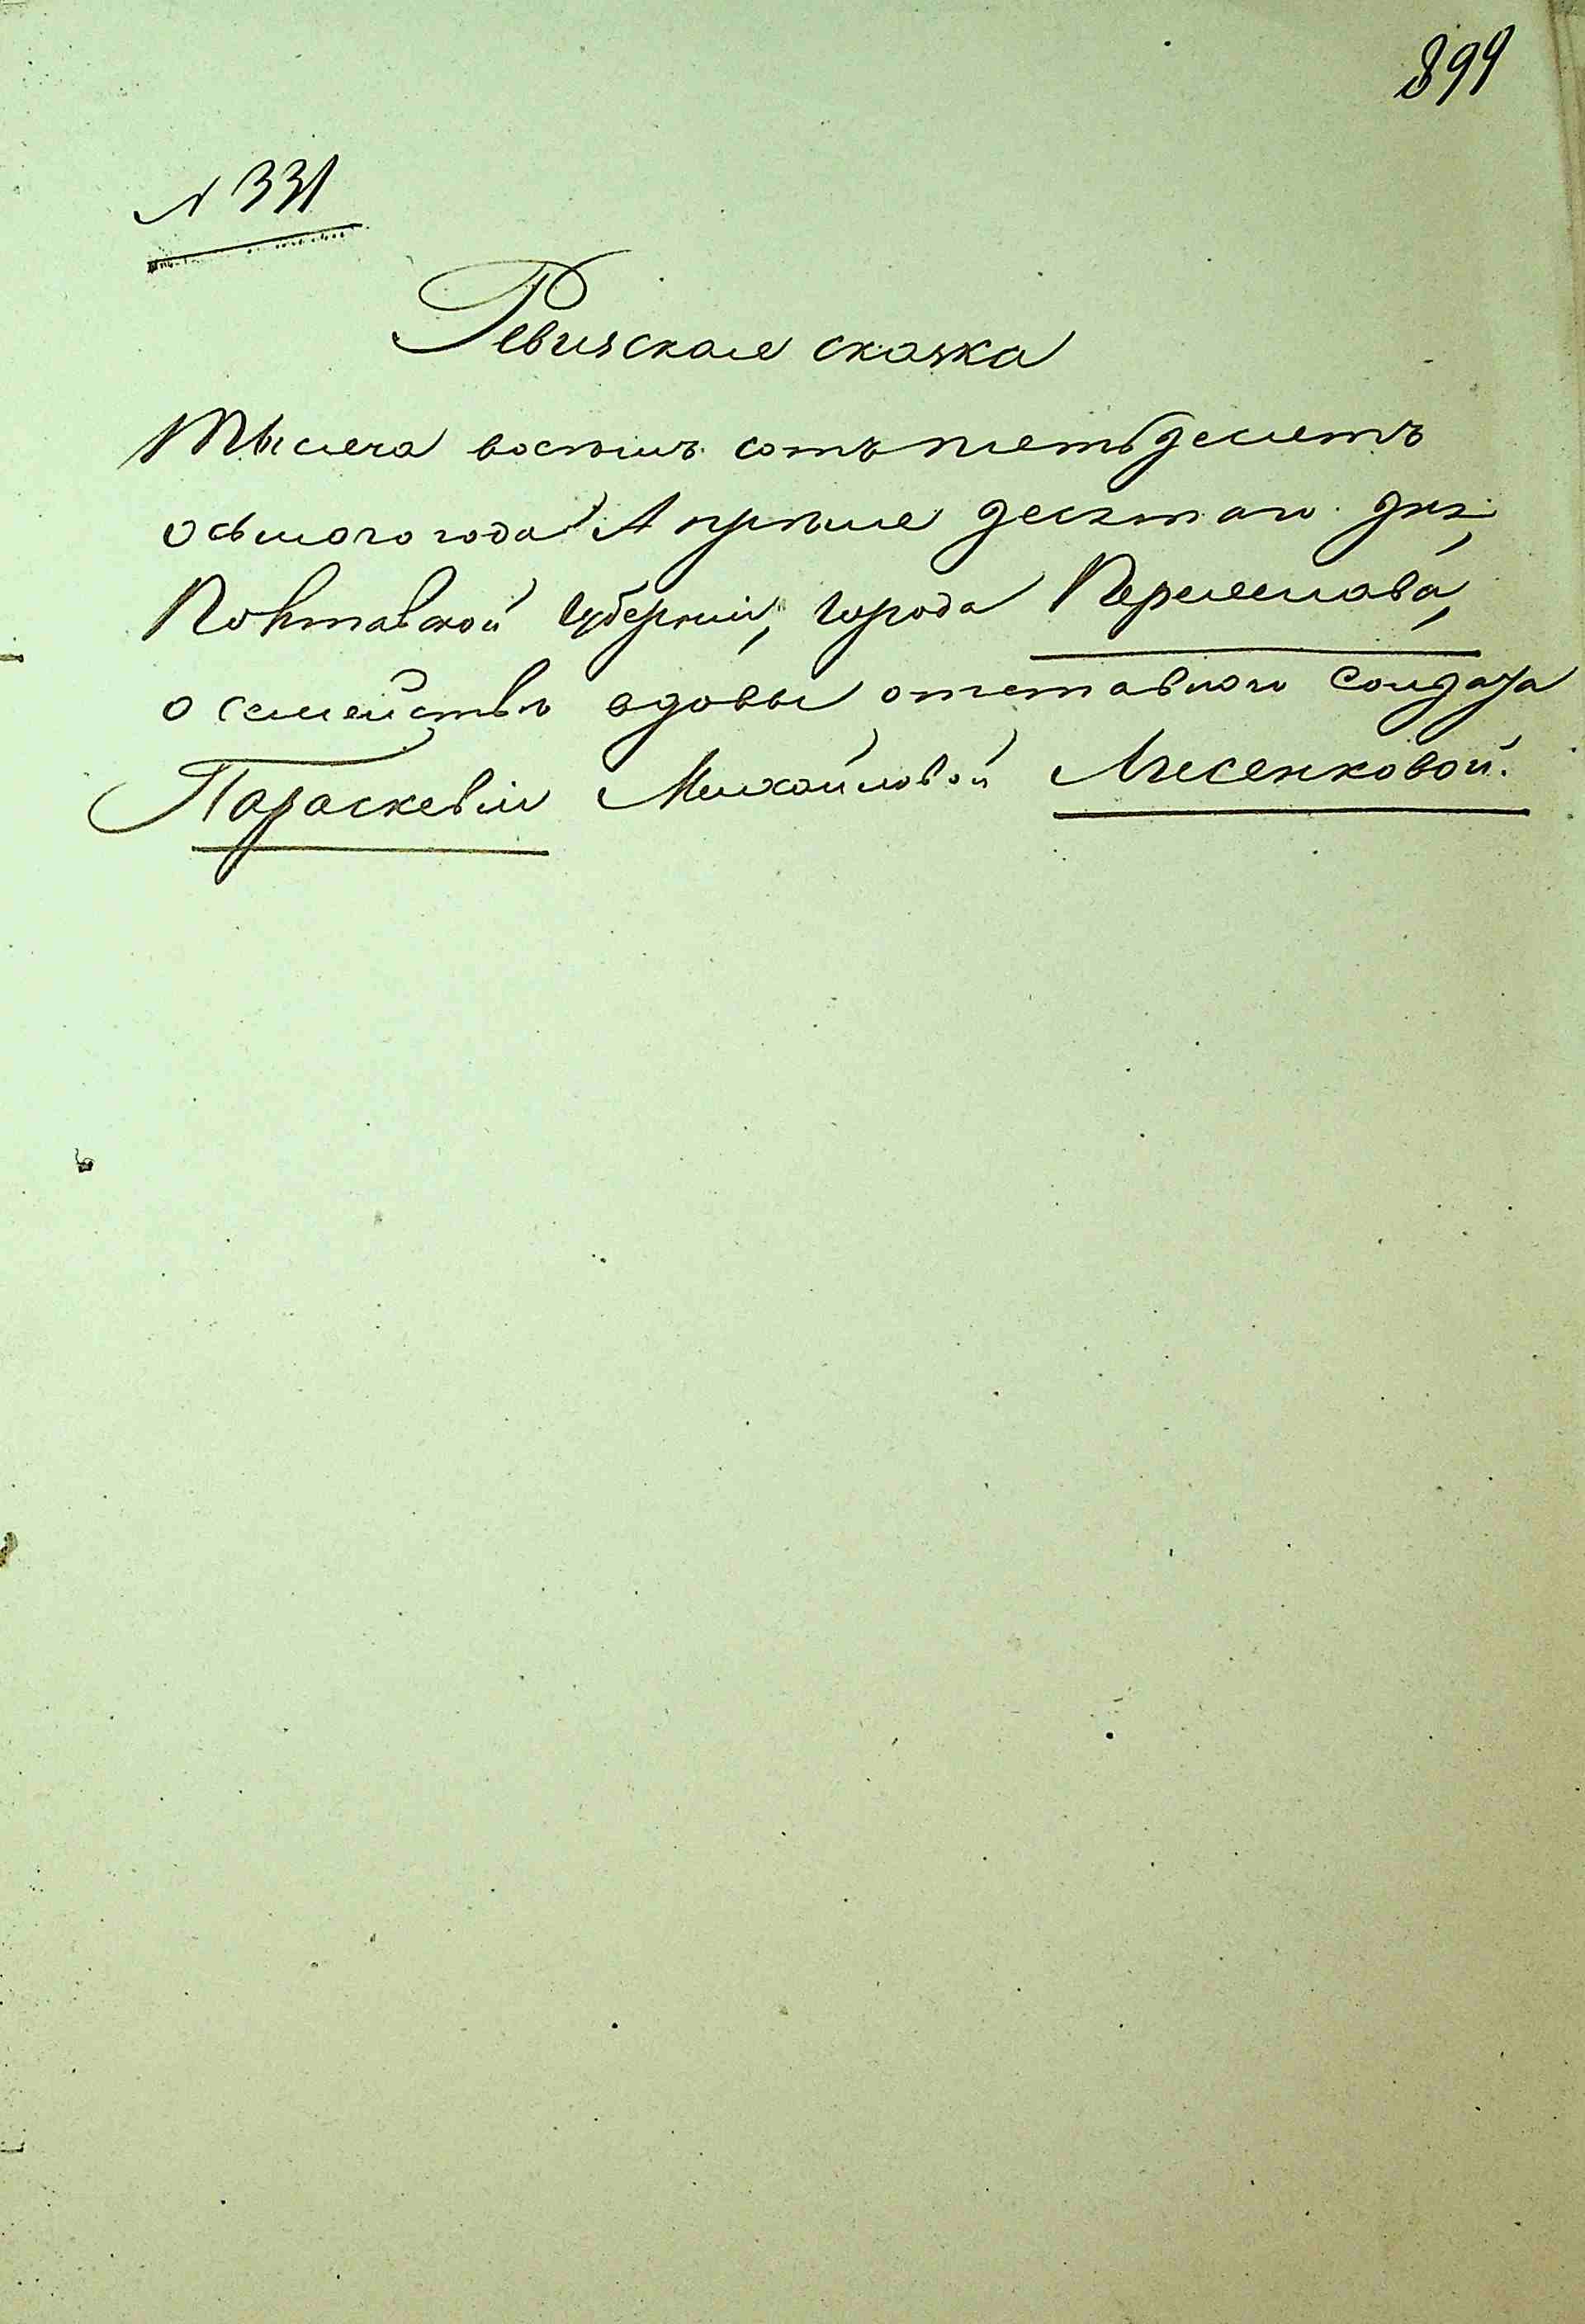 899
N 331
Ревизская сказка
Тысяча восемь сотъ пятьдесятъ
осьмого года Апреля десятаго дня,
Полтавской Губерніи, города Переяслава,
о семействѣ вдовы отставного солдата
Параскевіи Михайловой Лисенковой.